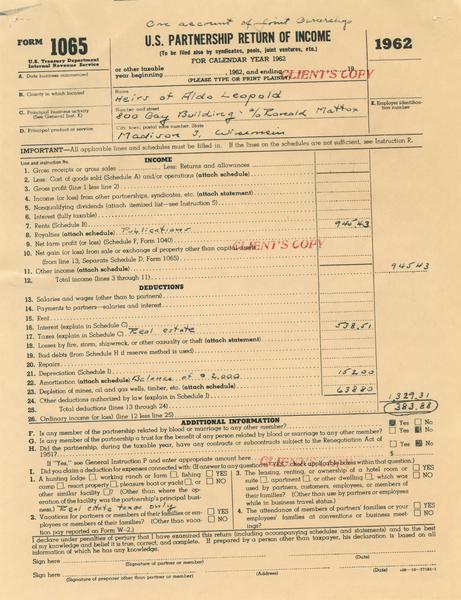 On account of joint Ownership
FORM 1065
U.S. Treasury Department
Internal Revenue Service
U.S. PARTNERSHIP RETURN OF INCOME
(To be filed also by syndicates, pools, joint ventures, etc.)
FOR CALENDAR YEAR 1962
1962
or other taxable
year beginning , 1962, and ending 19
(PLEASE TYPE OR PRINT PLAINLY)
CLIENT'S COPY
A. Date business commenced
B. County in which located
C. Principal business activity
(See General Inst. K)
D. Principal product or service
Name
Heirs of Aldo Leopold
Number and street
800 Gay Building c/o Ronald Mattox
City, town, postal zone number, State
Madison 3, Wisconsin
E. Employer identification number
IMPORTANT—All applicable lines and schedules must be filled in. If the lines on the schedules are not sufficient, see Instruction R.
Line and instruction No.
INCOME
1. Gross receipts or gross sales Less: Returns and allowances
2. Less: Cost of goods sold (Schedule A) and/or operations (attach schedule)
3. Gross profit (line 1 less line 2)
4. Income (or loss) from other partnerships, syndicates, etc. (attach statement)
5. Nonqualifying dividends (attach itemized list—see Instruction 5)
6. Interest (fully taxable)
7. Rents (Schedule B)
8. Royalties (attach schedule) Publications 945.43
9. Net farm profit (or loss) (Schedule F, Form 1040)
10. Net gain (or loss) from sale or exchange of property other than capital assets
(from line 13, Separate Schedule D, Form 1065)
CLIENT'S COPY
11. Other income (attach schedule)
12. Total income (lines 3 through 11) 945.43
DEDUCTIONS
13. Salaries and wages (other than to partners)
14. Payments to partners—salaries and interest
15. Rent
16. Interest (explain in Schedule C)
17. Taxes (explain in Schedule C) Real estate 538.51
18. Losses by fire, storm, shipwreck, or other casualty or theft (attach statement)
19. Bad debts (from Schedule H if reserve method is used)
20. Repairs
21. Depreciation (Schedule I) 152.00
22. Amortization (attach schedule) Balance of $2,000 638.80
23. Depletion of mines, oil and gas wells, timber, etc. (attach schedule)
24. Other deductions authorized by law (explain in Schedule I)
25. Total deductions (lines 13 through 24) 1329.31
26. Ordinary income (or loss) (line 12 less line 25) 383.88
ADDITIONAL INFORMATION
F. Is any member of the partnership related by blood or marriage to any other member? Yes No
G. Is any member of the partnership a trust for the benefit of any person related by blood or marriage to any other member? Yes No
H. Did the partnership, during the taxable year, have any contracts or subcontracts subject to the Renegotiation Act of
1951? Yes No
If "Yes," see General Instruction P and enter appropriate amount here $
I. Did you claim a deduction for expenses connected with: (If answer to any question is "YES," check applicable boxes within that question.)
1. A hunting lodge , working ranch or farm , fishing camp , resort property , pleasure boat or yacht , or other similar facility ? (Other than where the operation of the facility was the partnership's principal business.) YES NO
Real estate taxes only
2. Vacations for partners or members of their families or employees or members of their families? (Other than vacation pay reported on Form W-2.) YES NO
3. The leasing, renting, or ownership of a hotel room or suite , apartment , or other dwelling , which was used by partners, customers, employees, or members of their families? (Other than use by partners or employees while in business travel status.) YES NO
4. The attendance of members of partners' families or your employees' families at conventions or business meetings? YES NO
I declare under penalties of perjury that I have examined this return (including accompanying schedules and statements) and to the best of my knowledge and belief it is true, correct, and complete. If prepared by a person other than taxpayer, his declaration is based on all information of which he has any knowledge.
Sign here
(Signature of partner or member) (Date)
Sign here
(Signature of preparer other than partner or member) (Address) (Date)